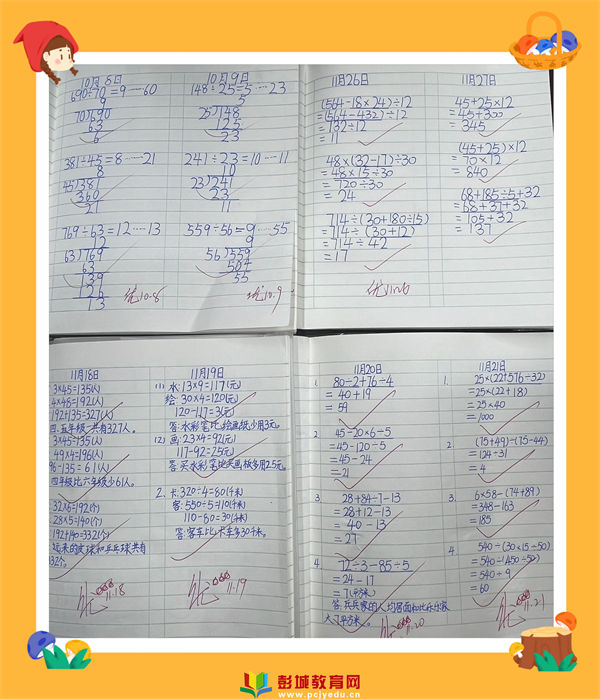 10月8日
690÷70=9……60
9
70)690
63
6
381÷45=8……21
8
45)381
360
21
769÷63=12……13
12
63)769
63
139
126
13
优10.8
10月9日
148÷25=5……23
5
25)148
125
23
241÷23=10……11
10
23)241
23
11
559÷56=9……55
9
56)559
504
55
优10.9
11月26日
(564-18×24)÷12
=(564-432)÷12
=132÷12
=11
48×(32-17)÷30
=48×15÷30
=720÷30
=24
714÷(30+180÷15)
=714÷(30+12)
=714÷42
=17
优11.26
11月27日
45+25×12
=45+300
=345
(45+25)×12
=70×12
=840
68+185÷5+32
=68+37+32
=105+32
=137
11月18日
3×45=135(人)
4×48=192(人)
192+135=327(人)
四、五年级一共有327人。
3×45=135(人)
49×4=196(人)
96-135=61(人)
四年级比六年级少61人。
32×6=192(个)
28×5=140(个)
192+140=332(个)
皮球和乒乓球共有
32个。
优11.18
11月19日
(1) 水:13×9=117(元)
绘:30×4=120(元)
120-117=3(元)
答:水彩笔比绘画纸少用3元。
(2) 画:23×4=92(元)
117-92=25(元)
答:买水彩笔比买画板多用25元。
2. 卡:320÷4=80(千米)
客:550÷5=110(千米)
110-80=30(千米)
答:客车比卡车多30千米。
优11.19
11月20日
1. 80-2+76-4
=40+19
=59
2. 45-20×6÷5
=45-120÷5
=45-24
=21
3. 28+84÷7-13
=28+12-13
=40-13
=27
4. 72÷3-85÷5
=24-17
=7(平方米)
大7平方米。
优11.20
11月21日
1. 25×(22+576÷32)
=25×(22+18)
=25×40
=1000
2. (75+49)-(75-44)
=124-31
=4
3. 6×58-(74+89)
=348-163
=185
4. 540÷(30×15÷50)
=540÷(450÷50)
=540÷9
=60
优11.21
彭城教育网
www.pcjyedu.cn